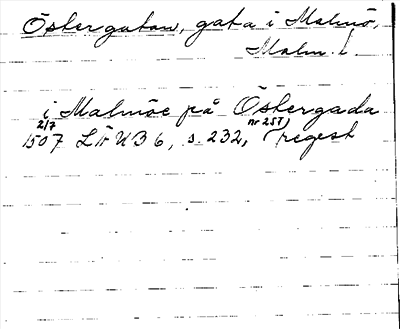 Östergatan, gata i Malmö,
Malm. l
i Malmöe på Östergada
2/7 nr 257)
1507 LÄUB 6, s. 232, (regest